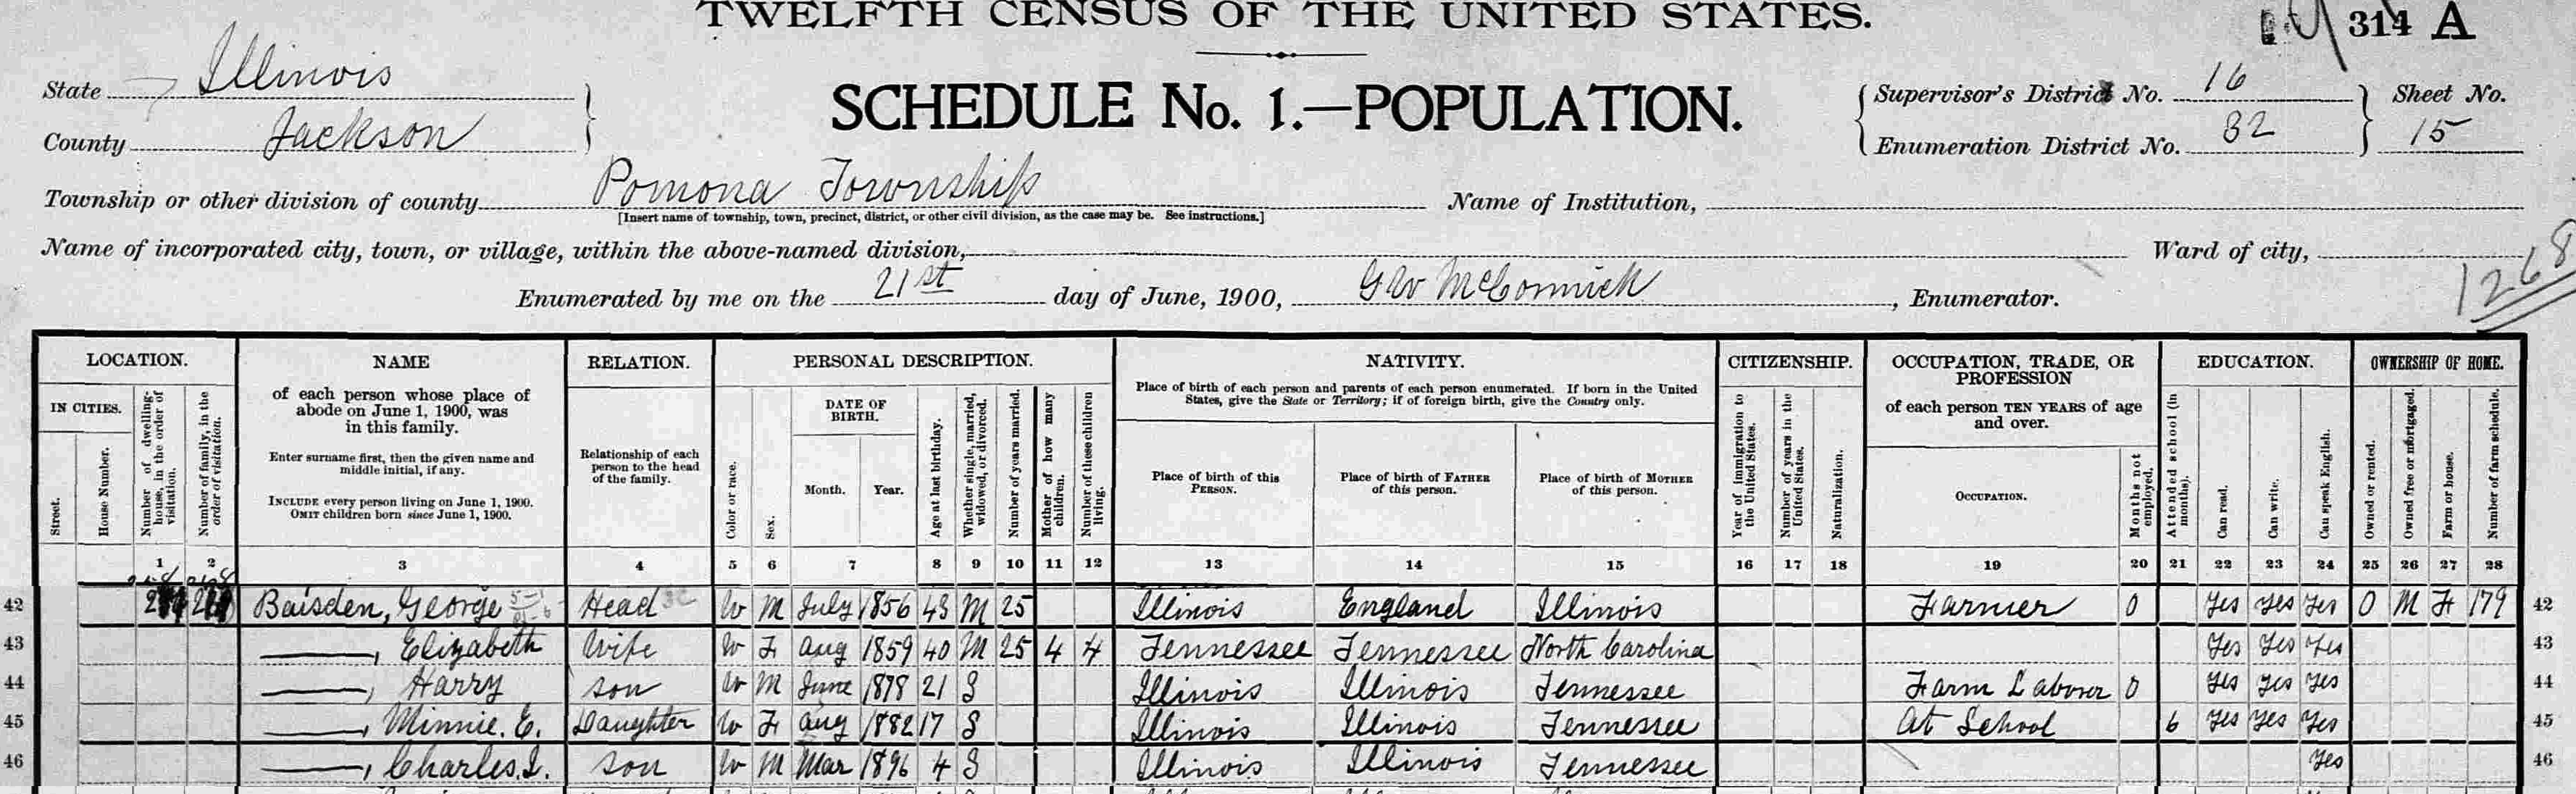 TWELFTH CENSUS OF THE UNITED STATES.
314 A
State Illinois
County Jackson
SCHEDULE No. 1.—POPULATION.
Supervisor's District No. 16
Enumeration District No. 82
Sheet No.
15
Township or other division of county Pomona Township
[Insert name of township, town, precinct, district, or other civil division, as the case may be. See instructions.]
Name of Institution,
Name of incorporated city, town, or village, within the above-named division,
Ward of city,
1268
Enumerated by me on the 21st day of June, 1900, GW McCormick, Enumerator.
LOCATION.
IN CITIES.
Street.
House Number.
Number of dwelling-house, in the order of visitation.
Number of family, in the order of visitation.
NAME
of each person whose place of
abode on June 1, 1900, was
in this family.
Enter surname first, then the given name and
middle initial, if any.
INCLUDE every person living on June 1, 1900.
OMIT children born since June 1, 1900.
RELATION.
Relationship of each
person to the head
of the family.
PERSONAL DESCRIPTION.
Color or race.
Sex.
DATE OF
BIRTH.
Month. Year.
Age at last birthday.
Whether single, married, widowed, or divorced.
Number of years married.
Mother of how many children.
Number of these children living.
NATIVITY.
Place of birth of each person and parents of each person enumerated. If born in the United
States, give the State or Territory; if of foreign birth, give the Country only.
Place of birth of this
PERSON.
Place of birth of FATHER
of this person.
Place of birth of MOTHER
of this person.
CITIZENSHIP.
Year of immigration to the United States.
Number of years in the United States.
Naturalization.
OCCUPATION, TRADE, OR
PROFESSION
of each person TEN YEARS of age
and over.
OCCUPATION.
Months not employed.
EDUCATION.
Attended school (in months).
Can read.
Can write.
Can speak English.
OWNERSHIP OF HOME.
Owned or rented.
Owned free or mortgaged.
Farm or house.
Number of farm schedule.
1 2 3 4 5 6 7 8 9 10 11 12 13 14 15 16 17 18 19 20 21 22 23 24 25 26 27 28
42 Baisden, George Head W M July 1856 43 M 25 Illinois England Illinois Farmer 0 Yes Yes Yes O M F 179 42
43 ——, Elizabeth Wife W F Aug 1859 40 M 25 4 4 Tennessee Tennessee North Carolina Yes Yes Yes 43
44 ——, Harry son W M June 1878 21 S Illinois Illinois Tennessee Farm Laborer 0 Yes Yes Yes 44
45 ——, Minnie. E. Daughter W F Aug 1882 17 S Illinois Illinois Tennessee At School 6 Yes Yes Yes 45
46 ——, Charles. I. son W M Mar 1896 4 S Illinois Illinois Tennessee Yes 46